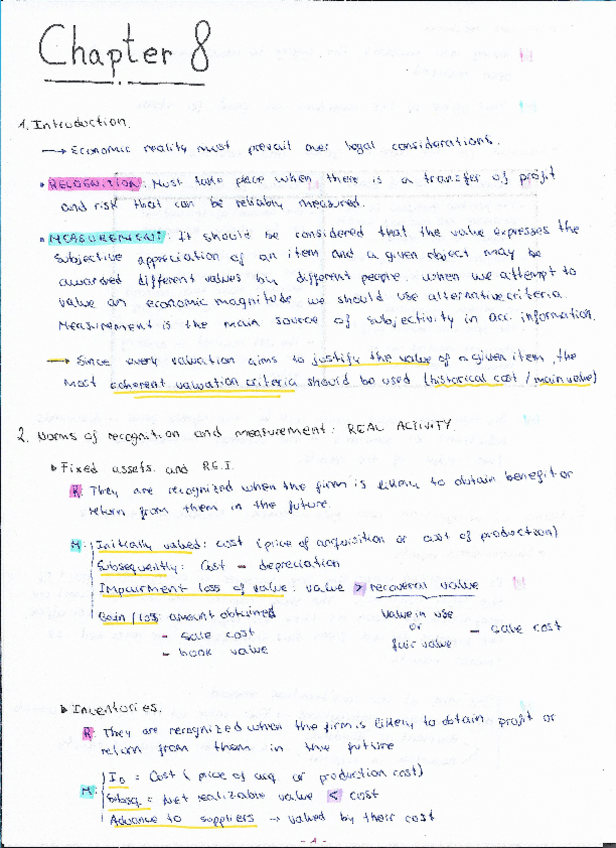 Chapter 8
1. Introduction.
→ Economic reality must prevail over legal considerations.
• RECOGNITION: Must take place when there is a transfer of profit
and risk that can be reliably measured.
• MEASUREMENT: It should be considered that the value expresses the
subjective appreciation of an item and a given object may be
awarded different values by different people. When we attempt to
value an economic magnitude we should use alternative criteria.
Measurement is the main source of subjectivity in acc. information.
→ Since every valuation aims to justify the value of a given item, the
most coherent valuation criteria should be used (historical cost / main value)
2. Norms of recognition and measurement: REAL ACTIVITY.
▸ Fixed assets and R.E.I.
R: They are recognized when the firm is likely to obtain benefit or
return from them in the future.
M: Initially valued: cost (price of acquisition or cost of production)
Subsequently: Cost - depreciation
Impairment loss of value: value > recoveral value
Gain / loss: amount obtained
- sale cost
- book value
Value in use
or
fair value
- sale cost
▸ Inventories.
R: They are recognized when the firm is likely to obtain profit or
return from them in the future
M: I0 = Cost (price of acq or production cost)
Subsq.= Net realizable value < cost
Advance to suppliers → valued by their cost
- 1 -